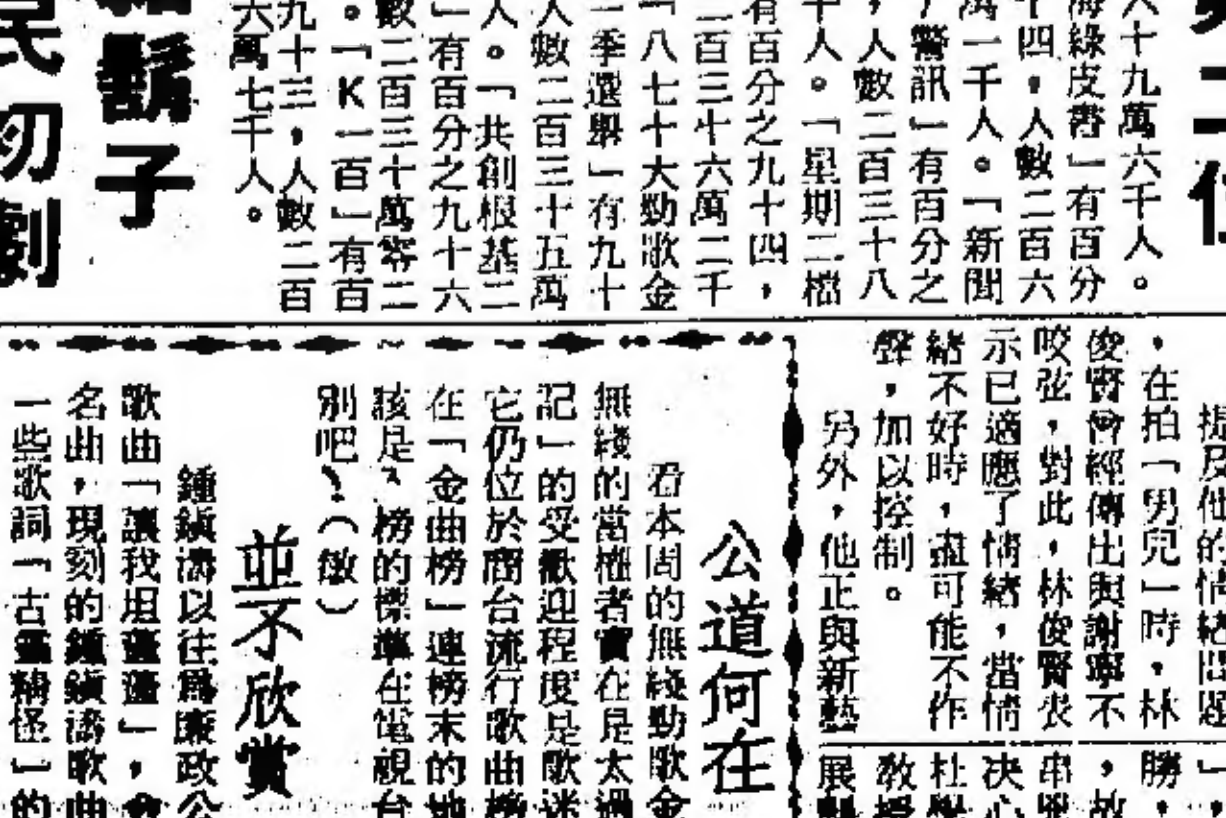 第二位
八十九萬六千人。
海綠皮書」有百分
十四，人數二百六
萬一千人。「新聞
警訊」有百分之
，人數二百三十八
千人。「星期二檔
有百分之九十四，
二百三十六萬二千
「八七十大勁歌金
一季選舉」有九十
人數二百三十五萬
人。「共創根基二
」有百分之九十六
數二百三十萬零二
。「K一百」有百
九十三，人數二百
六萬七千人。
鬍子
民初劇
提及他的情緒問題
，在拍「男兒」時，林
俊賢曾經傳出與謝寧不
咬弦，對此，林俊賢表
示已適應了情緒，當情
緒不好時，盡可能不作
聲，加以控制。
另外，他正與新藝
」，
勝，
，故
串
決心
杜
教授
展
公道何在
看本周的無綫勁歌金
無綫的當權者實在是太過
記」的受歡迎程度是歌迷
它仍位於商台流行歌曲榜
在「金曲榜」連榜末的地
該是入榜的標準在電視台
別吧！（徹）
並不欣賞
鍾鎮濤以往為廉政公
歌曲「讓我坦蕩蕩」，會
名曲，現刻的鍾鎮濤歌曲
一些歌詞「古靈精怪」的